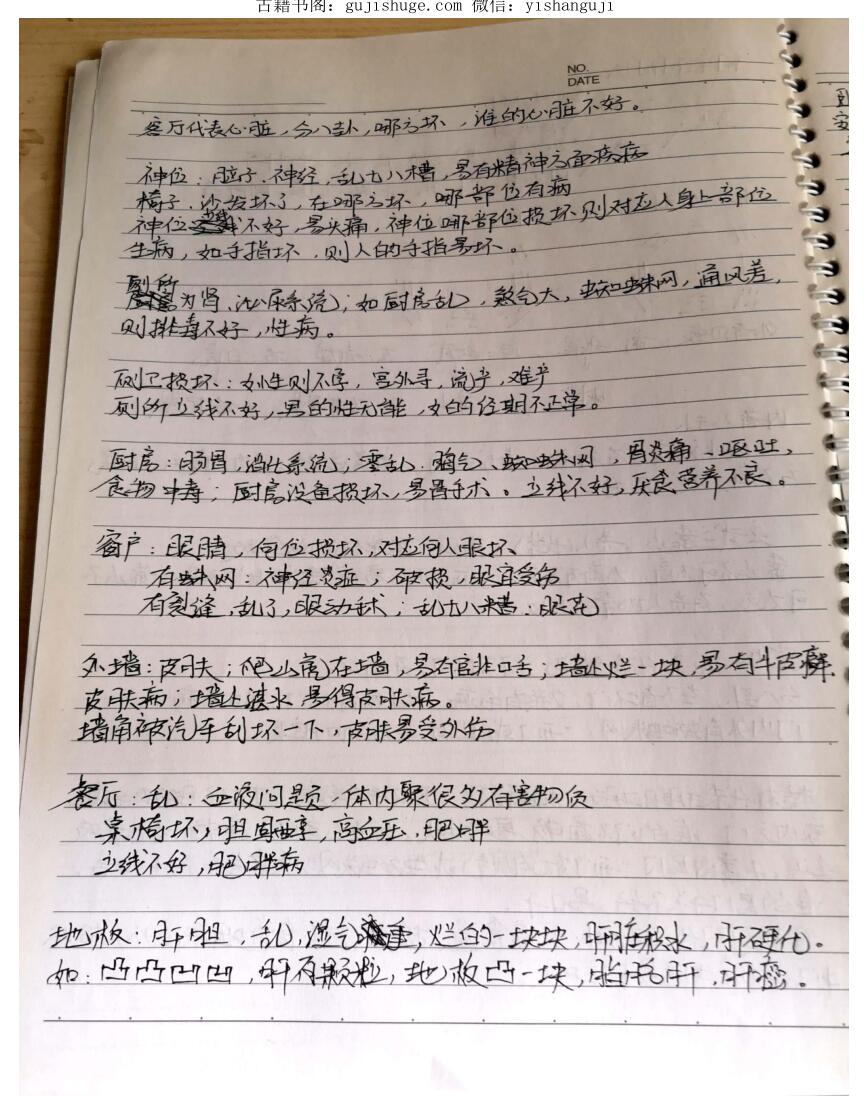 古籍书阁: gujishuge.com 微信: yishanguji
NO.
DATE
客厅代表心脏，分八卦，哪方坏，谁的心脏不好。
神位：脑子、神经，乱七八糟，易有精神方面疾病
椅子、沙发坏了，在哪方坏，哪部位有病
神位 不好，易头痛，神位哪部位损坏则对应人身上部位
生病，如手指坏，则人的手指易坏。
厕所为肾、泌尿系统；如厨房乱，煞气大，蜘蛛网，通风差，
则排毒不好，性病。
厕卫损坏：女性则不孕，宫外孕，流产，难产
厕所立线不好，男的性无能，女的经期不正常。
厨房：肠胃，消化系统；零乱、 气、蜘蛛网，胃炎痛、呕吐，
食物中毒；厨房设备损坏，易胃手术。立线不好，厌食营养不良。
窗户：眼睛，何位损坏，对应何人眼坏
有蛛网：神经炎症；破损，眼宜受伤
有裂缝，乱了，眼动手术；乱七八糟：眼花
外墙：皮肤；爬山虎在墙，易有官非口舌；墙上烂一块，易有牛皮癣
皮肤病；墙上湛水易得皮肤病。
墙角被汽车刮坏一下，皮肤易受外伤
餐厅：乱：血液问题、体内聚很多有害物质
桌椅坏，胆固醇，高血压，肥胖
立线不好，肥胖病
地板：肝胆，乱，湿气重，烂的一块块，肝脏积水，肝硬化。
如：凹凸凹凹，肝有颗粒，地板凸一块，脂肪肝，肝癌。